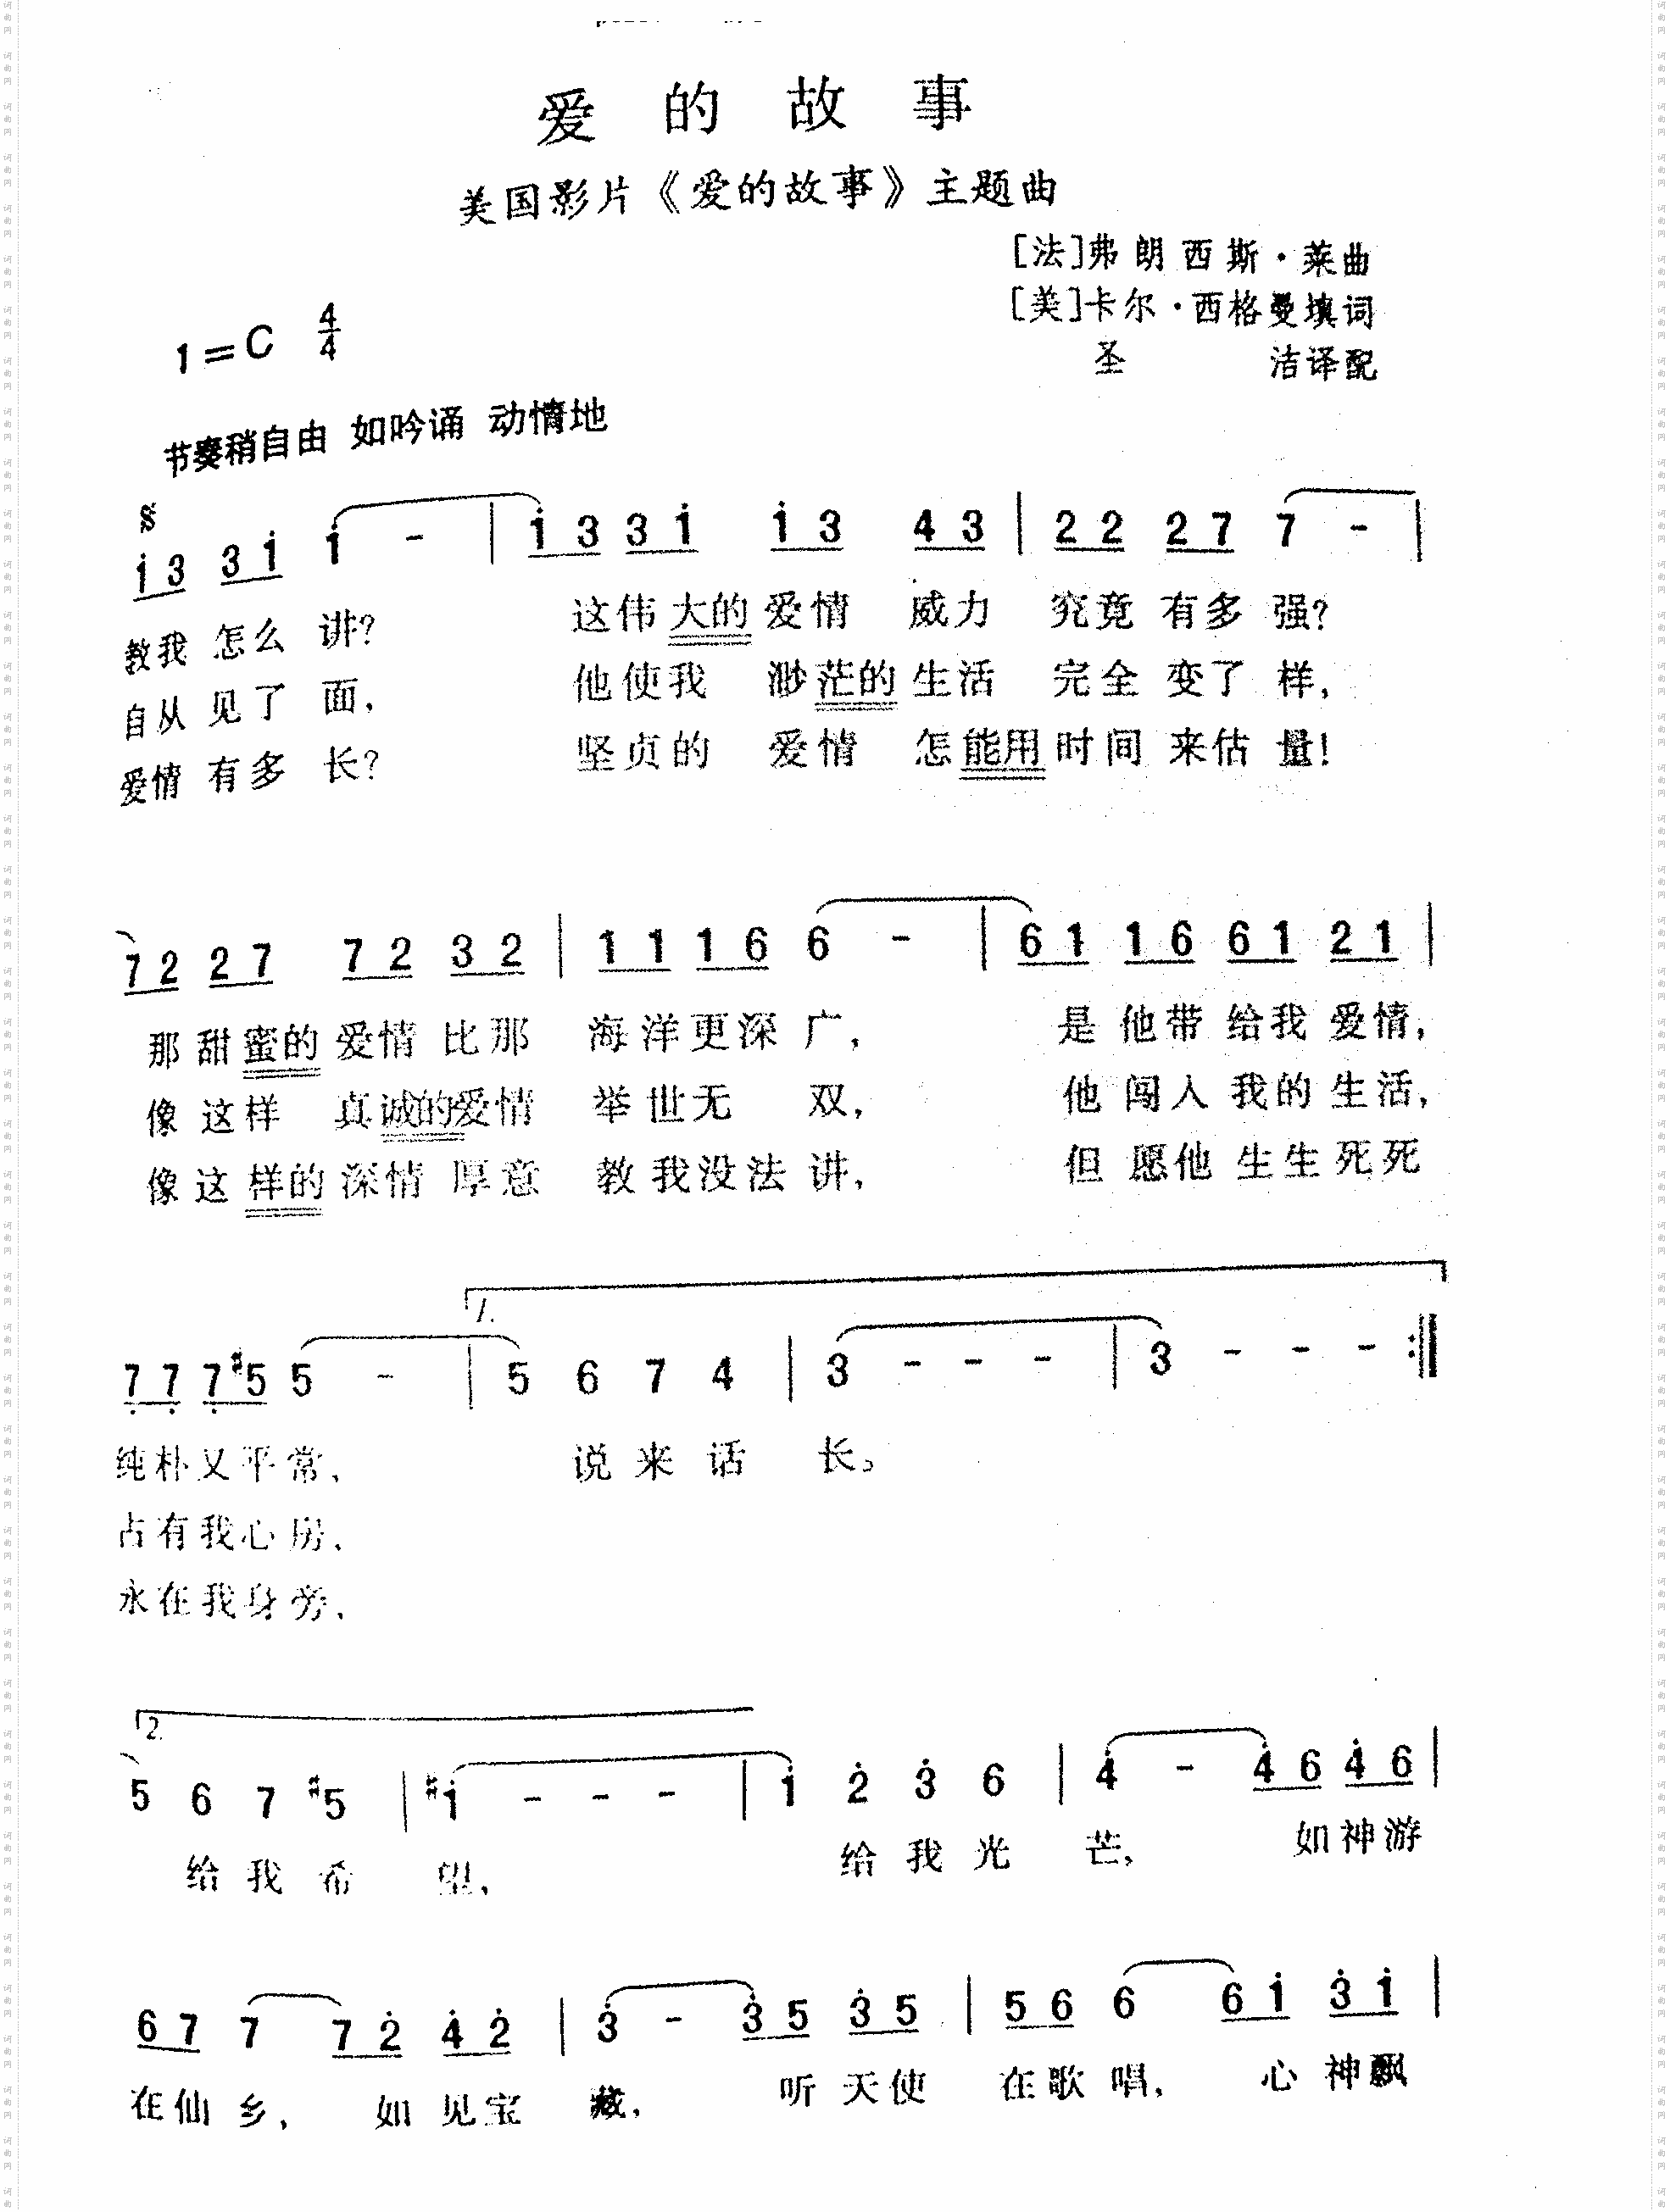 爱的故事
美国影片《爱的故事》主题曲
[法]弗朗西斯·莱曲
[美]卡尔·西格曼填词
圣 洁译配
1=C 4/4
节奏稍自由 如吟诵 动情地
i 3 3 i i - | i 3 3 i i 3 4 3 | 2 2 2 7 7 - |
教我 怎么 讲? 这伟 大的 爱情 威力 究竟 有多 强?
自从 见了 面, 他使我 渺茫的 生活 完全 变了 样,
爱情 有多 长? 坚贞的 爱情 怎能用 时间 来估 量!
7 2 2 7 7 2 3 2 | 1 1 1 6 6 - | 6 1 1 6 6 1 2 1 |
那甜蜜的 爱情 比那 海洋更深 广, 是 他带 给我 爱情,
像这样 真诚的爱情 举世无 双, 他 闯入 我的 生活,
像这样的 深情 厚意 教我没法 讲, 但 愿他 生生 死死
1.
7 7 7 #5 5 - | 5 6 7 4 | 3 - - - | 3 - - - :‖
纯朴又平常, 说来话 长。
占有我心房,
永在我身旁,
2.
5 6 7 #5 | #i - - - | i 2 3 6 | 4 - 4 6 4 6 |
给我希 望, 给我光 芒, 如神游
6 7 7 7 2 4 2 | 3 - 3 5 3 5 | 5 6 6 6 i 3 i |
在仙 乡, 如 见宝 藏, 听 天使 在歌 唱, 心 神飘